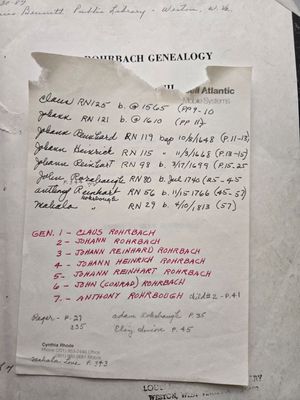 Bennett Public Library - Weston, W. Va.
ROHRBACH GENEALOGY
III
Bell Atlantic
Mobile Systems
Claus RN125 b. @ 1565 (PP9-10
Johann RN 121 b @ 1610 (PP 11)
Johann Reinhard RN 119 bap 10/8/1648 (P.11-13)
Johann Heinrich RN 115 " 11/3/1668 (P.13-15)
Johann Reinhart RN 98 b. 3/17/1699 (P.15-25
John, Rorabaugh RN 80 b. Jul 1740 (25-45
Anthony Reinhart RN 56 b 11/15 1766 (45-57)
Rohrbough
Mahala " RN 29 b. 4/10/1813 (57)
GEN. 1 - CLAUS ROHRBACH
2 - JOHANN ROHRBACH
3 - JOHANN REINHARD ROHRBACH
4 - JOHANN HEINRICH ROHRBACH
5 - JOHANN REINHART ROHRBACH
6 - JOHN (CONRAD) ROHRBACH
7. - ANTHONY ROHRBOUGH child #2 - P.41
Roger - P. 27
235
Adam Rohrbaugh P. 35
P. 45
Cynthia Rhode
P. 343
WESTON, WEST